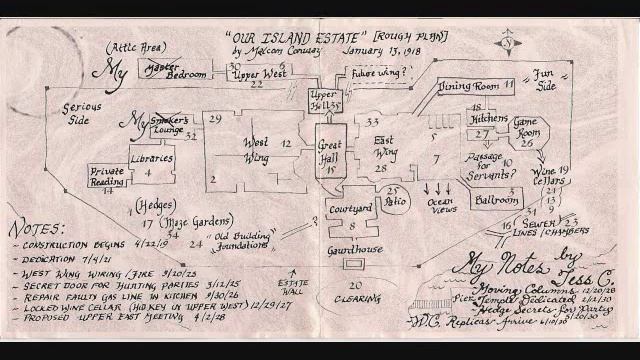 "OUR ISLAND ESTATE" [ROUGH PLAN]
by Malcom Conway January 13, 1918
(Attic Area)
My Master Bedroom
30 6
Upper West
22
Future wing?
Upper Hall 35
Dining Room 11
"Fun Side"
Serious Side
My Smoker's Lounge
32
29
West Wing
12
2
Great Hall
15
33
East Wing
28
5
7
18
Kitchens
27
Game Room
26
Libraries
4
Private Reading
14
Passage for Servants?
10
Wine Cellars
19
21
13
9
31
3
Ballroom
25
Patio
Ocean Views
Courtyard
8
Guardhouse
20
CLEARING
(Hedges)
1
17 (Maze Gardens)
34
24 "Old Building" Foundations
3
ESTATE WALL
16 SEWER 23
LINES/CHAMBERS
NOTES:
- CONSTRUCTION BEGINS 4/22/19
- DEDICATION 7/4/21
- WEST WING WIRING/FIRE 9/20/25
- SECRET DOOR FOR HUNTING PARTIES 3/12/25
- REPAIR FAULTY GAS LINE IN KITCHEN 9/30/26
- LOCKED WINE CELLAR (HID KEY IN UPPER WEST) 12/29/27
- PROPOSED UPPER EAST MEETING 4/2/28
My Notes by Jess C.
- Moving Columns 12/20/28
Pier
- Temple Dedicated 1/12/30
- Hedge Secrets for Party 5/20/30
- W.C. Replicas Arrive 6/10/30